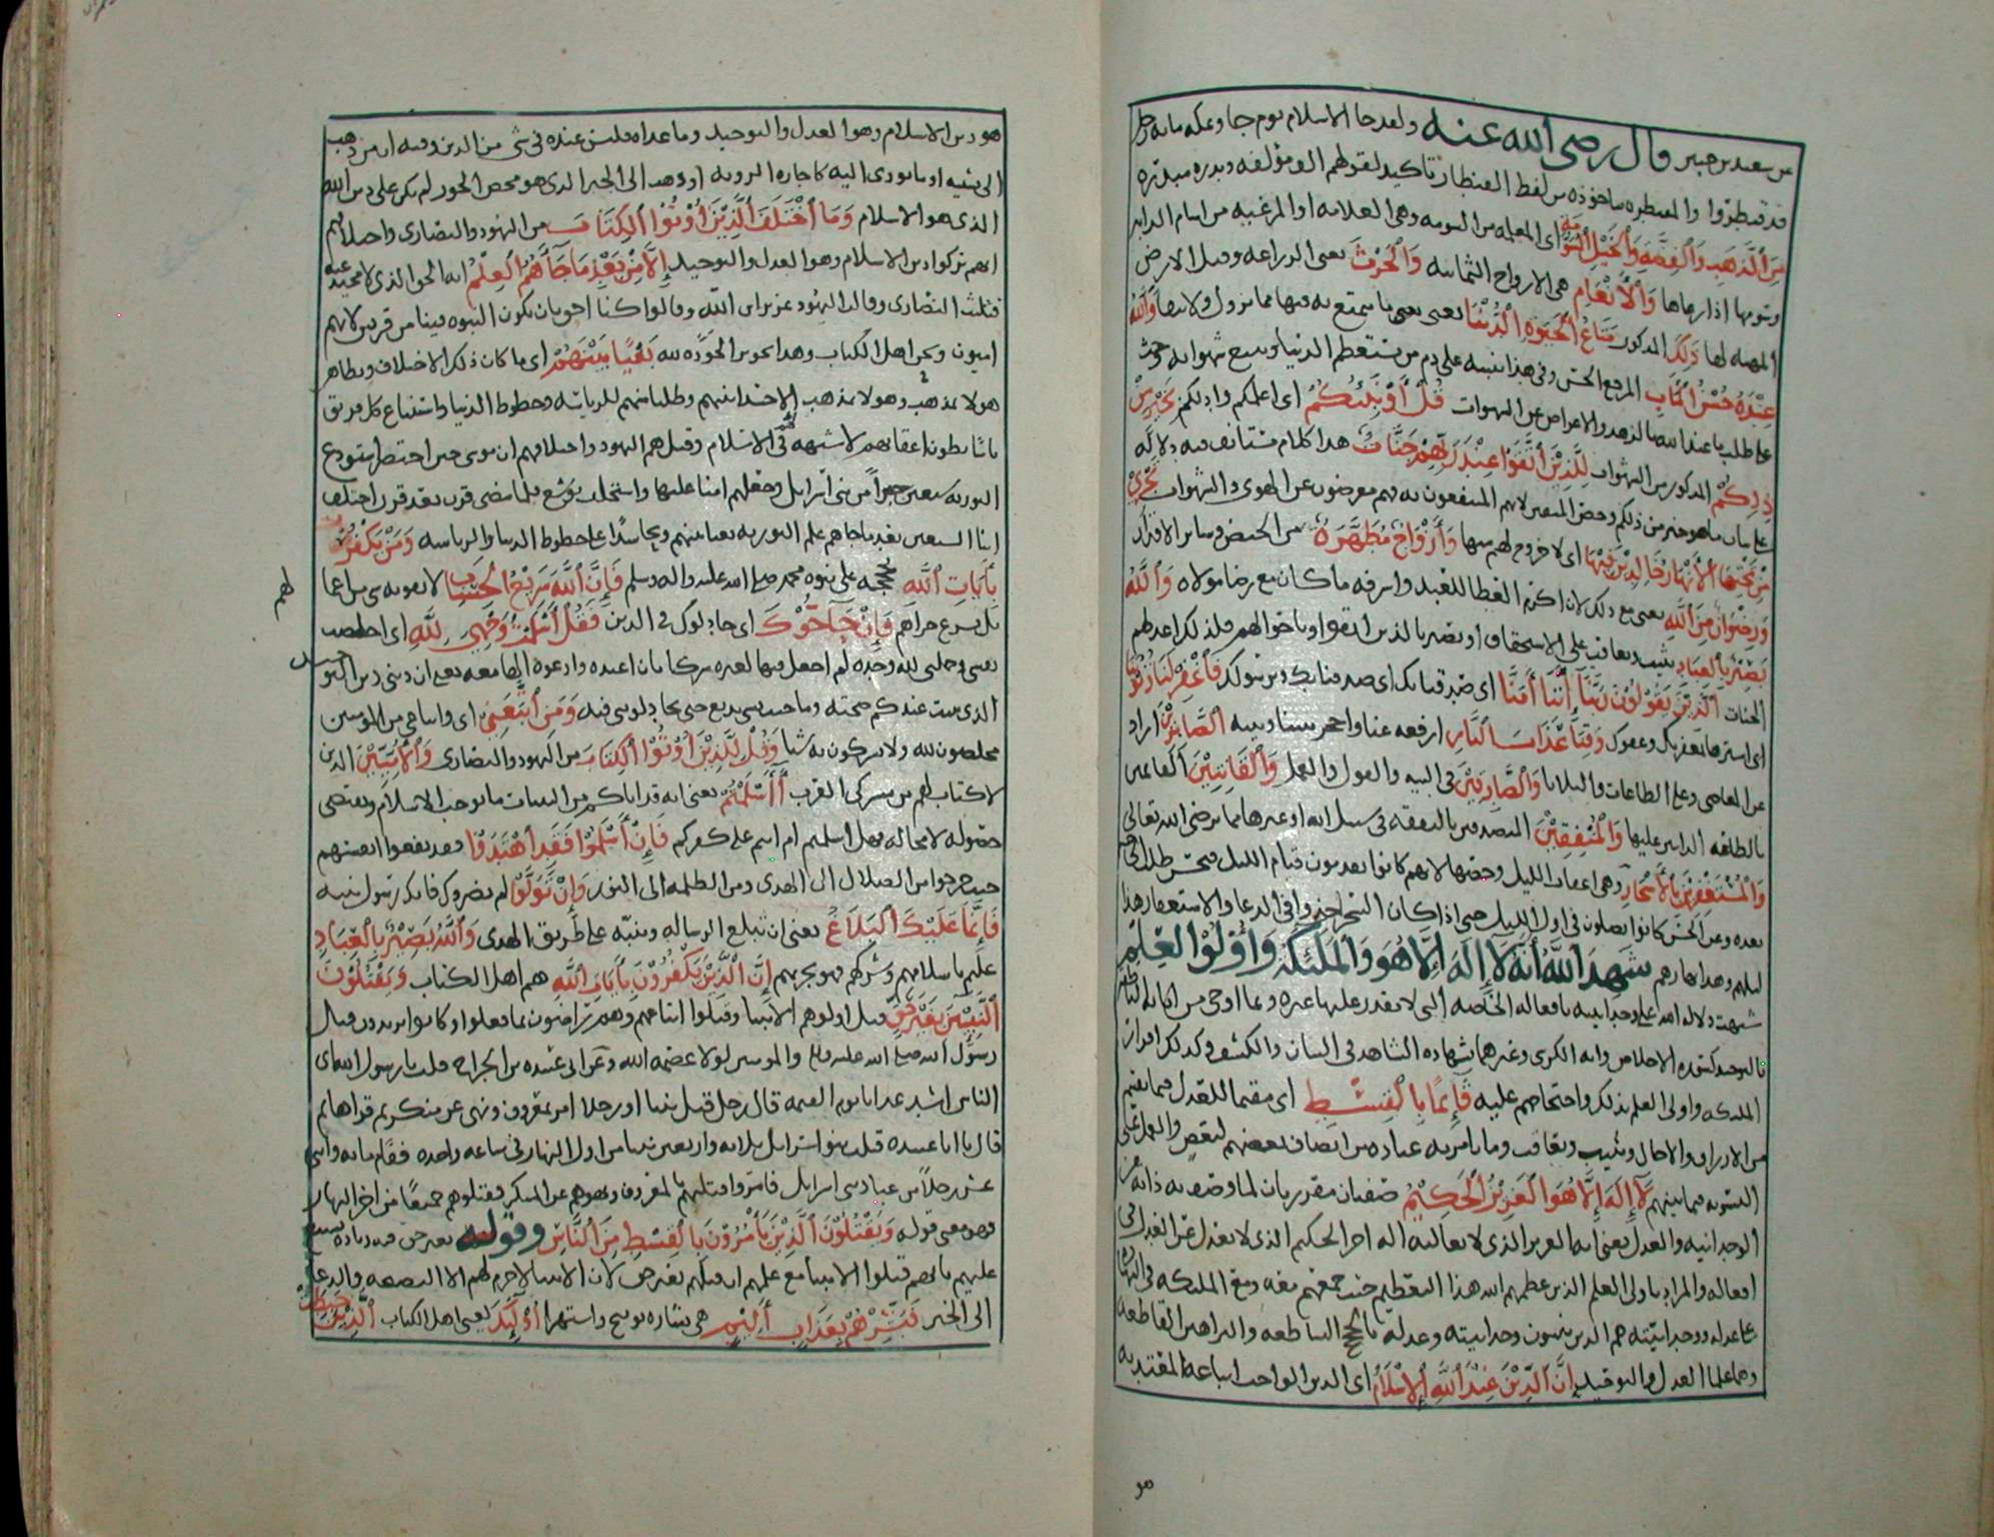 عن سعيد بن جبير قال رضى الله عنه ولقد جا الاسلام يوم جا وبمكه مايه رجل
قد قنطروا والمقنطره ماخوذه من لفظ القنطار تاكيد لقولهم الف مولفه وبدره مبدره
مِنَ الذَّهَبِ وَالفِضَّهِ وَالخَيْلِ المُسَوَّمَهِ اى المعلمه من السومه وهى العلامه او المرعيه من اسام الدابه
وسومها اذا رعاها وَالأَنْعَامِ هى الازواج الثمانيه وَالحَرْثِ يعنى الزراعه وقيل الارض
المهيه لها ذَلِكَ المذكور مَتَاعُ الحَيوهِ الدُّنْيَا يعنى ما يتمتع به فيها مما يزول ولا يبقا وَاللهُ
عِنْدَهُ حُسْنُ المَآبِ المرجع الحسن وفى هذا تنبيه على ذم من يستعظم الدنيا ويتبع شهواته وحث
على طلب ما عند الله بالزهد والاعراض عن الشهوات قُلْ أَؤُنَبِّئُكُمْ اى اعلمكم وادلكم بِخَيْرٍ مِنْ
ذلِكُمْ المذكور من الشهوات لِلَّذِيْنَ اتَّقَوْا عِنْدَ رَبِّهِمْ جَنَّاتٌ هذا كلام مستانف فيه دلاله
على بيان ما هو خير من ذلكم وخص المتقين لانهم المنتفعون به فهم معرضون عن الهوى والشهوات تَجْرِيْ
مِنْ تَحْتِهَا الأَنْهَارُ خَالِدِيْنَ فِيْهَا اى لا خروج لهم منها وَأَزْوَاجٌ مُطَهَّرَهٌ من الحيض وساير الاقذار
وَرِضْوَانٌ مِنَ اللهِ يعنى مع ذلك لان اكبر العطا للعبد واشرفه ما كان مع رضا مولاه وَاللهُ
بَصِيْرٌ بِالعِبَادِ يثيب ويعاقب على الاستحقاق او بصير بالذين اتقوا وباحوالهم فلذلك اعد لهم
الجنات الَّذِيْنَ يَقُوْلُوْنَ رَبَّنَا إِنَّنَا آمَنَّا اى صدقنا بك وبرسولك فَاغْفِرْ لَنَا ذُنُوْبَنَا
اى استرها بمغفرتك وعفوك وَقِنَا عَذَابَ النَّارِ ارفعه عنا الصَّابِرِيْنَ اراد
عن المعاصى وعلى الطاعات والبلايا وَالصَّادِقِيْنَ فى النيه والقول والعمل وَالقَانِتِيْنَ القايمين
بالطاعه الدايبين عليها وَالمُنْفِقِيْنَ المتصدقين بالنفقه فى سبيل الله او غيرها مما يرضى الله تعالى
وَالمُسْتَغْفِرِيْنَ بِالأَسْحَارِ وهى اعقاب الليل وخصها لانهم كانوا يقدمون قيام الليل فيحسن طلب الحاجه
بعده وعن الحسن كانوا يصلون فى اول الليل حتى اذا كان السحر اخذوا فى الدعا والاستغفار هذا
ليلهم وهذا نهارهم شَهِدَ اللهُ أَنَّهُ لاَ إِلَهَ إِلاَّ هُوَ وَالمَلَئِكَهُ وَأُوْلُوْا العِلْمِ
شبهت دلالته على وحدانيته بافعاله الخاصه التى لا يقدر عليها غيره وبما اوحى من اياته الناطقه
بالتوحيد كسوره الاخلاص وايه الكرسى وغيرهما بشهاده الشاهد فى البيان والكشف وكذلك اقرار
الملئكه واولى العلم بذلك واحتجاجهم عليه قَائِمًا بِالقِسْطِ اى مقيما للعدل فيما يقسم
من الارزاق والاجال ويثيب ويعاقب وما يامر به عباده من انصاف بعضهم لبعض والعمل على
التسويه فيما بينهم لاَ إِلَهَ إِلاَّ هُوَ العَزِيْزُ الحَكِيْمُ صفتان مقررتان لما وصف به ذاته من
الوحدانيه والعدل يعنى انه العزيز الذى لا يغالبه اله اخر الحكيم الذى لا يعدل عن العدل فى
افعاله والمراد باولى العلم الذين عظمهم الله هذا التعظيم حيث جمعهم معه ومع الملئكه فى الشهاده
على عدله ووحدانيته هم الذين يثبتون وحدانيته وعدله بالحجج الساطعه والبراهين القاطعه
وهم علما العدل والتوحيد إِنَّ الدِّيْنَ عِنْدَ اللهِ الإِسْلاَمُ اى الدين الواجب اتباعه المعتد به
هو
هو دين الاسلام وهو العدل والتوحيد وما عداه فليس عنده فى شى من الدين وفيه ان من ذهب
الى تشبيه او ما يودى اليه كاجازه الرويه او ذهب الى الجبر الذى هو محض الجور لم يكن على دين الله
الذى هو الاسلام وَمَا اخْتَلَفَ الَّذِيْنَ أُوْتُوْا الكِتَابَ من اليهود والنصارى واختلافهم
انهم تركوا دين الاسلام وهو العدل والتوحيد إِلاَّ مِنْ بَعْدِ مَا جَآءَهُمُ العِلْمُ انه الحق الذى لا محيد عنه
فثلثت النصارى وقالت اليهود عزير ابن الله وقالوا كنا احق بان تكون النبوه فينا من قريش لانهم
اميون ونحن اهل الكتاب وهذا تجوير لله بَغْيًا بَيْنَهُمْ اى ما كان ذلك الاختلاف وتظاهر
هولا بمذهب وهولا بمذهب الا حسدا بينهم وطلبا منهم للرياسه وحظوظ الدنيا واستتباع كل فريق
ناسا يطون اعقابهم لا شبهه فى الاسلام وقيل هم اليهود واختلافهم ان موسى حين احتضر استودع
التوريه سبعين حبرا من بنى اسرايل وجعلهم امنا عليها واستخلف يوشع فلما مضى قرن بعد قرن اختلف
ابنا السبعين بعد ما جاهم علم التوريه بغيا بينهم وتحاسدا على حظوظ الدنيا والرياسه وَمَنْ يَكْفُرْ
بِآيَاتِ اللهِ بحججه على نبوه محمد صلى الله عليه واله وسلم فَإِنَّ اللهَ سَرِيْعُ الحِسَابِ لا يفوته شى من اعما
لهم
بل يسرع جزاهم فَإِنْ حَآجُّوْكَ اى جادلوك فى الدين فَقُلْ أَسْلَمْتُ وَجْهِيَ لِلَّهِ اى اخلصت
نفسى وجملتى لله وحده لم اجعل فيها لغيره شركا بان اعبده وادعوه الها معه يعنى ان دينى دين التو
حيد
الذى ثبت عندكم صحته وما جيت بشى بديع حتى تجادلونى فيه وَمَنِ اتَّبَعَنِ اى واتباعى من المومنين
مخلصون لله ولا يشركون به شيا وَقُلْ لِلَّذِيْنَ أُوْتُوْا الكِتَابَ من اليهود والنصارى وَالأُمِّيِّيْنَ الذين
لا كتاب لهم من مشركى العرب أَأَسْلَمْتُمْ يعنى انه قد اتاكم من البينات ما يوجب الاسلام ويقتضى
حصوله لا محاله فهل اسلمتم ام انتم على كفركم فَإِنْ أَسْلَمُوْا فَقَدِ اهْتَدَوْا فقد نفعوا انفسهم
حيث خرجوا من الضلال الى الهدى ومن الظلمه الى النور وَإِنْ تَوَلَّوْا لم يضروك فانك رسول منبه
فَإِنَّمَا عَلَيْكَ البَلاَغُ يعنى ان تبلغ الرساله وتنبه على طريق الهدى وَاللهُ بَصِيْرٌ بِالعِبَادِ
عليم باسلامهم وشركهم فهو يجزيهم إِنَّ الَّذِيْنَ يَكْفُرُوْنَ بِآيَاتِ اللهِ هم اهل الكتاب وَيَقْتُلُوْنَ
النَّبِيِّيْنَ بِغَيْرِ حَقٍّ قتل اولوهم الانبيا وقتلوا اتباعهم وهم راضون بما فعلوا وكانوا يريدون قتال
رسول الله صلى الله عليه واله والمومنين لولا عصمه الله وعن ابى عبيده بن الجراح قلت يا رسول الله اى
الناس اشد عذابا يوم القيمه قال رجل قتل نبيا او رجلا امر بمعروف ونهى عن منكر ثم قراها ثم
قال يا ابا عبيده قتلت بنو اسرايل ثلاثه واربعين نبيا من اول النهار فى ساعه واحده فقام مايه واثنى
عشر رجلا من عباد بنى اسرايل فامروا قتلتهم بالمعروف ونهوهم عن المنكر فقتلوهم جميعا من اخر النهار
فهو معنى قوله وَيَقْتُلُوْنَ الَّذِيْنَ يَأْمُرُوْنَ بِالقِسْطِ مِنَ النَّاسِ وقوله بغير حق فيه زياده تشنيع
عليهم بانهم قتلوا الانبيا مع علمهم ان قتلهم بغير حق لان الانبيا لا جرم لهم الا النصيحه والدعا
الى الخير فَبَشِّرْهُمْ بِعَذَابٍ أَلِيْمٍ هى بشاره توبيخ واستهزا أُوْلَئِكَ يعنى اهل الكتاب الَّذِيْنَ حَبِطَتْ